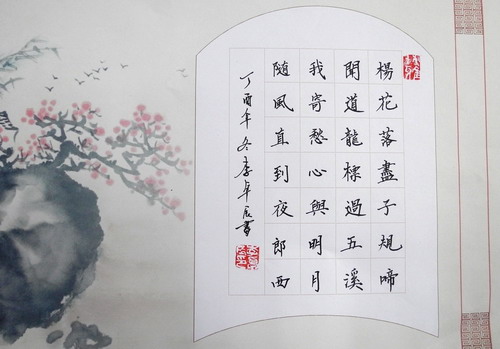 楊花落盡子規啼
聞道龍標過五溪
我寄愁心與明月
随風直到夜郎西
丁酉年冬李卓書